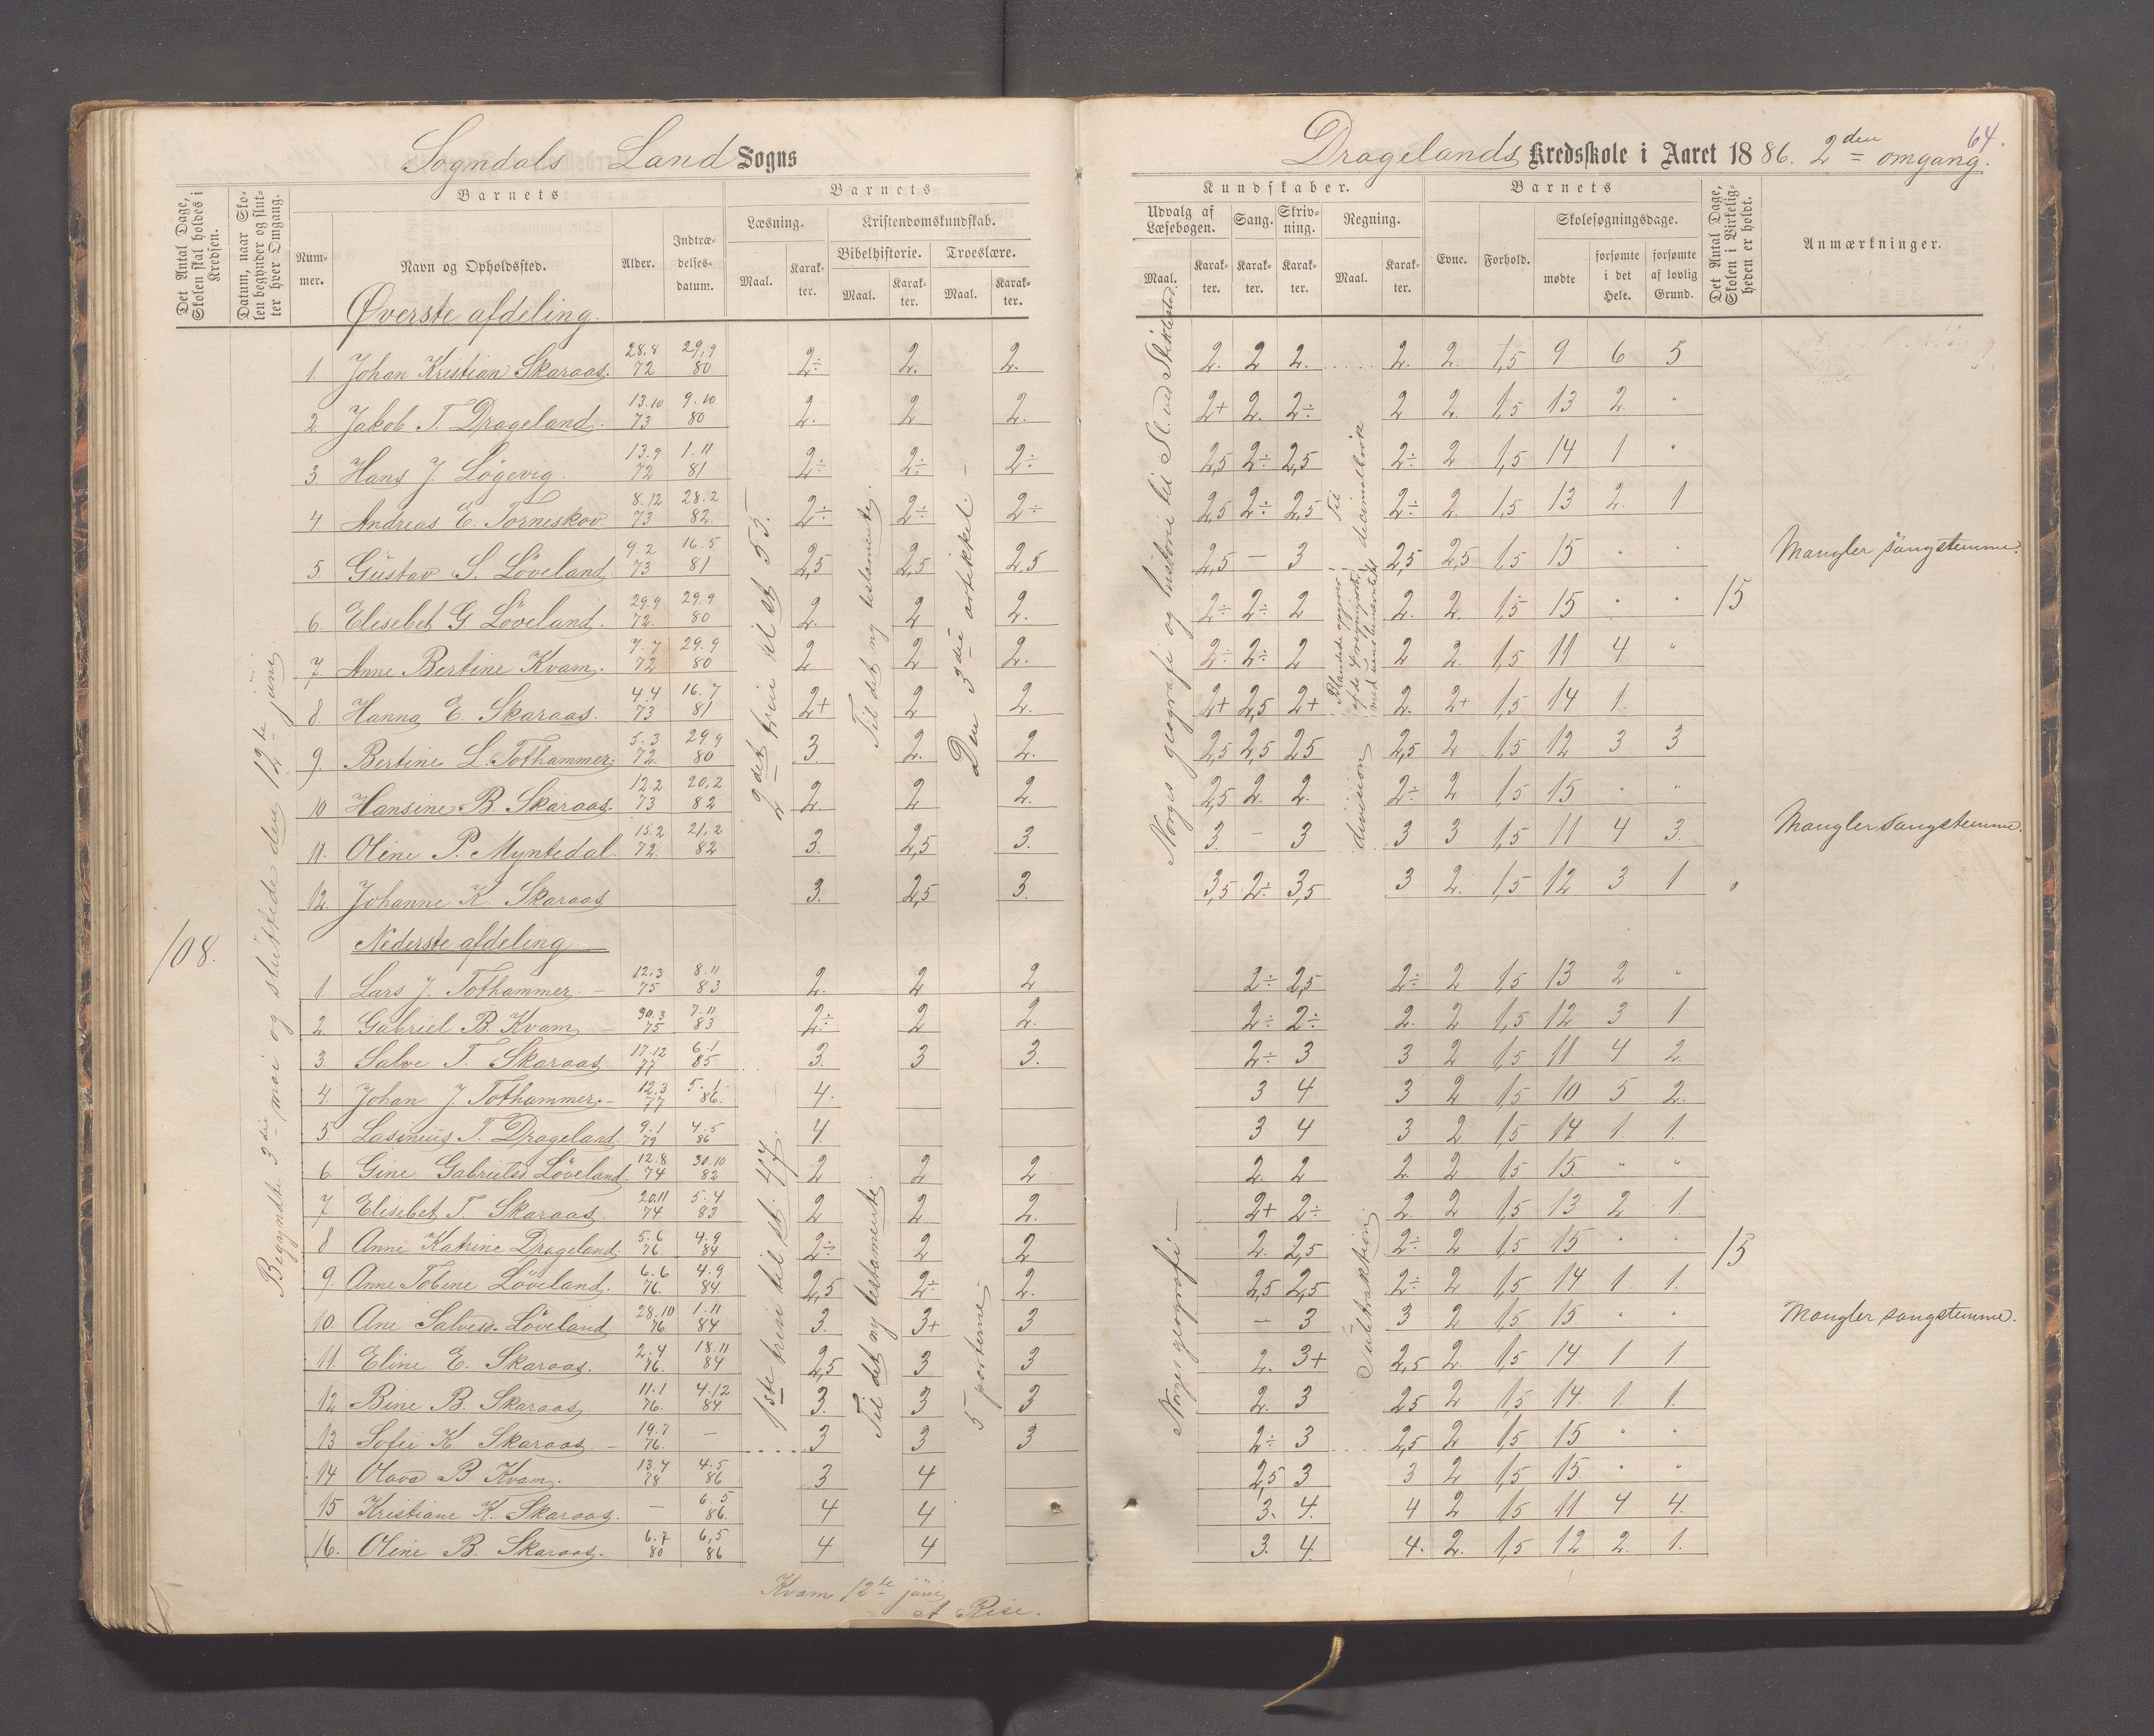 Sogndals Land Sogns
Det Antal Dage, Skolen skal holdes i Kredsen.
Datum, naar Skolen begynder og slutter hver Omgang.
Barnets
Barnets
Nummer.
Navn og Opholdssted.
Alder.
Indtrædelsesdatum.
Læsning.
Kristendomskundskab.
Maal.
Karakter.
Bibelhistorie.
Troeslære.
Maal.
Karakter.
Maal.
Karakter.
Øverste afdeling.
1. Johan Kristian Skaraas. 28.8 72 29,9 80 2÷ 2. 2.
2. Jakob T. Drageland. 13.10 73 9.10 80 2. 2 2.
3. Hans J. Lögevig. 13.9 72 1.11 81 2÷ 2÷ 2÷
4 Andreas E. Torneskov 8.12 73 28.2 82. 2÷ 2÷ 2÷
5 Gustav S. Löveland 9.2 73 16.5 81 2,5 2,5 2,5
6. Elisebet G. Löveland. 29.9 72. 29.9 80 2. 2 2.
7. Anne Bertine Kvam. 7.7 72 29.9 80 2 2 2.
8 Hanna E. Skaraas. 4.4 73 16.7 81 2+ 2 2.
9. Bertine L. Tothammer. 5.3 72. 29.9 80 3. 2. 2.
10 Hansine B. Skaraas. 12.2 73 20,2 82 2 2 2.
11. Oline P. Myntedal 15.2 72. 21,2 82 3. 2,5 3.
12. Johanne K. Skaraas 3. 2,5 3.
2det trin til st 55.
Til det ny testamente.
Den 3die artikkel.
108.
Begyndte 3die mai og sluttede den 12te juni.
Nederste afdeling
1. Lars J. Tothammer. 12.3 75 8.11 83 2. 2 2
2. Gabriel B. Kvam 30.3 75 7.11 83 2÷ 2 2.
3. Salve T. Skaraas. 17.12 77 6.1 85 3. 3 3.
4. Johan J. Tothammer. 12.3 77 5.1 86. 4.
5. Lasinius T. Drageland. 9.1 79 4.5 86 4.
6. Gine Gabrielsd. Löveland. 12.8 74 30.10 82 2 2 2
7 Elisebet T. Skaraas. 20.11 74 5.4 83 2 2 2.
8 Anne Katrine Drageland. 5.6 76. 4.9 84 2÷ 2 2
9. Anne Tobine Löveland. 6.6 76. 4.9 84. 2,5 2÷ 2.
10. Ane Salvesd. Löveland 28.10 76 1.11 84 3. 3+ 3
11. Eline E. Skaraas. 2.4 76. 18.11 84 2,5 3 3
12 Bine B. Skaraas 11.1 76. 4.12 84. 3. 3 3
13 Sofie K Skaraas. 19.7 76. — 3 3 3
14 Olava B. Kvam. 13.4 78 4.5 86 3 4
15 Kristiane K. Skaraas. — 6.5 86. 4 4
16. Oline B. Skaraas. 6.7 80 6,5 86 4 4
1ste trin til st. 47.
Til det ny testamente.
5 parterne
Kvam 12te juni
A Rise.
64.
Dragelands Kredsskole i Aaret 1886. 2den omgang.
Kundskaber.
Barnets
Det Antal Dage, Skolen i Virkeligheden er holdt.
Anmærkninger.
Udvalg af Læsebogen.
Sang.
Skrivning.
Regning.
Evne.
Forhold.
Skolesøgningsdage.
Maal.
Karakter.
Karakter.
Karakter.
Maal.
Karakter.
mødte
forsømte i det Hele.
forsømte af lovlig Grund.
2. 2 2. 2. 2. 1,5 9 6 5
2+ 2. 2÷ 2 2. 1,5 13 2. "
2,5 2÷ 2,5 2÷ 2 1,5 14 1 "
2,5 2÷ 2,5 2÷ 2. 1,5 13 2. 1.
2,5 — 3 2,5 2,5 1,5 15 " " Mangler sangstemme.
2÷ 2÷ 2 2. 2. 1,5 15 " " 15
2÷ 2÷ 2 2 2. 1,5 11 4 "
2+ 2,5 2+ 2. 2+ 1,5 14 1.
2,5 2,5 2,5 2,5 2 1,5 12 3 3
2,5 2. 2. 2÷ 2 1,5 15 " "
3. — 3 3 3 1,5 11 4 3. Mangler sangstemme.
3,5 2÷ 3,5 3 2. 1,5 12 3 1
Norges geografi og historie til Sl. ved Stiklestad
Til decimalbrök
division
2÷ 2,5 2÷ 2 1,5 13 2 "
2÷ 2÷ 2. 2 1,5 12 3 1
2÷ 3 3 2 1,5 11 4 2.
3 4 3 2 1,5 10 5 2.
3 4 3 2 1,5 14 1 1.
2. 2 2. 2 1,5 15. " "
2+ 2÷ 2. 2 1,5 13 2 1.
2. 2,5 2÷ 2 1,5 15 " " 15
2,5 2,5 2÷ 2 1,5 14 1 1.
— 3 3 2 1,5 15 " " Mangler sangstemme.
2. 3+ 2,5 2. 1,5 14 1 1
2. 3 2,5 2 1,5 14. 1. 1.
2÷ 3 2,5 2 1,5 15 " "
2,5 3 3 2 1,5 15 " "
3. 4. 4 2 1,5 11 4 4.
3. 4. 4. 2. 1,5 12 2. 1.
Norges geografi —
Subtraktion.